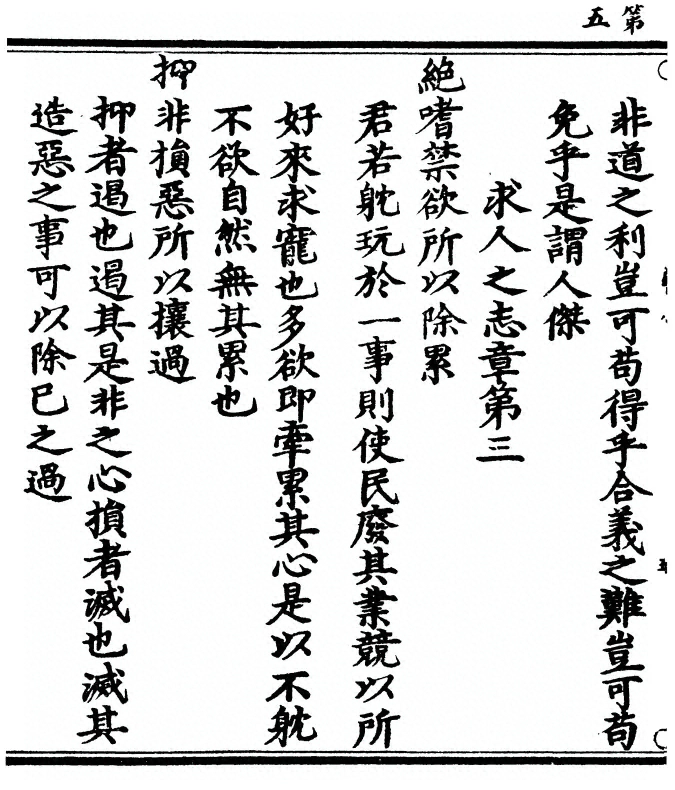 第五
非道之利豈可苟得乎合義之難豈可苟
免乎是謂人傑
求人之志章第三
絕嗜禁欲所以除累
君若躭玩於一事則使民廢其業競以所
好來求寵也多欲即牽累其心是以不躭
不欲自然無其累也
抑非損惡所以攘過
抑者遏也遏其是非之心損者滅也滅其
造惡之事可以除巳之過